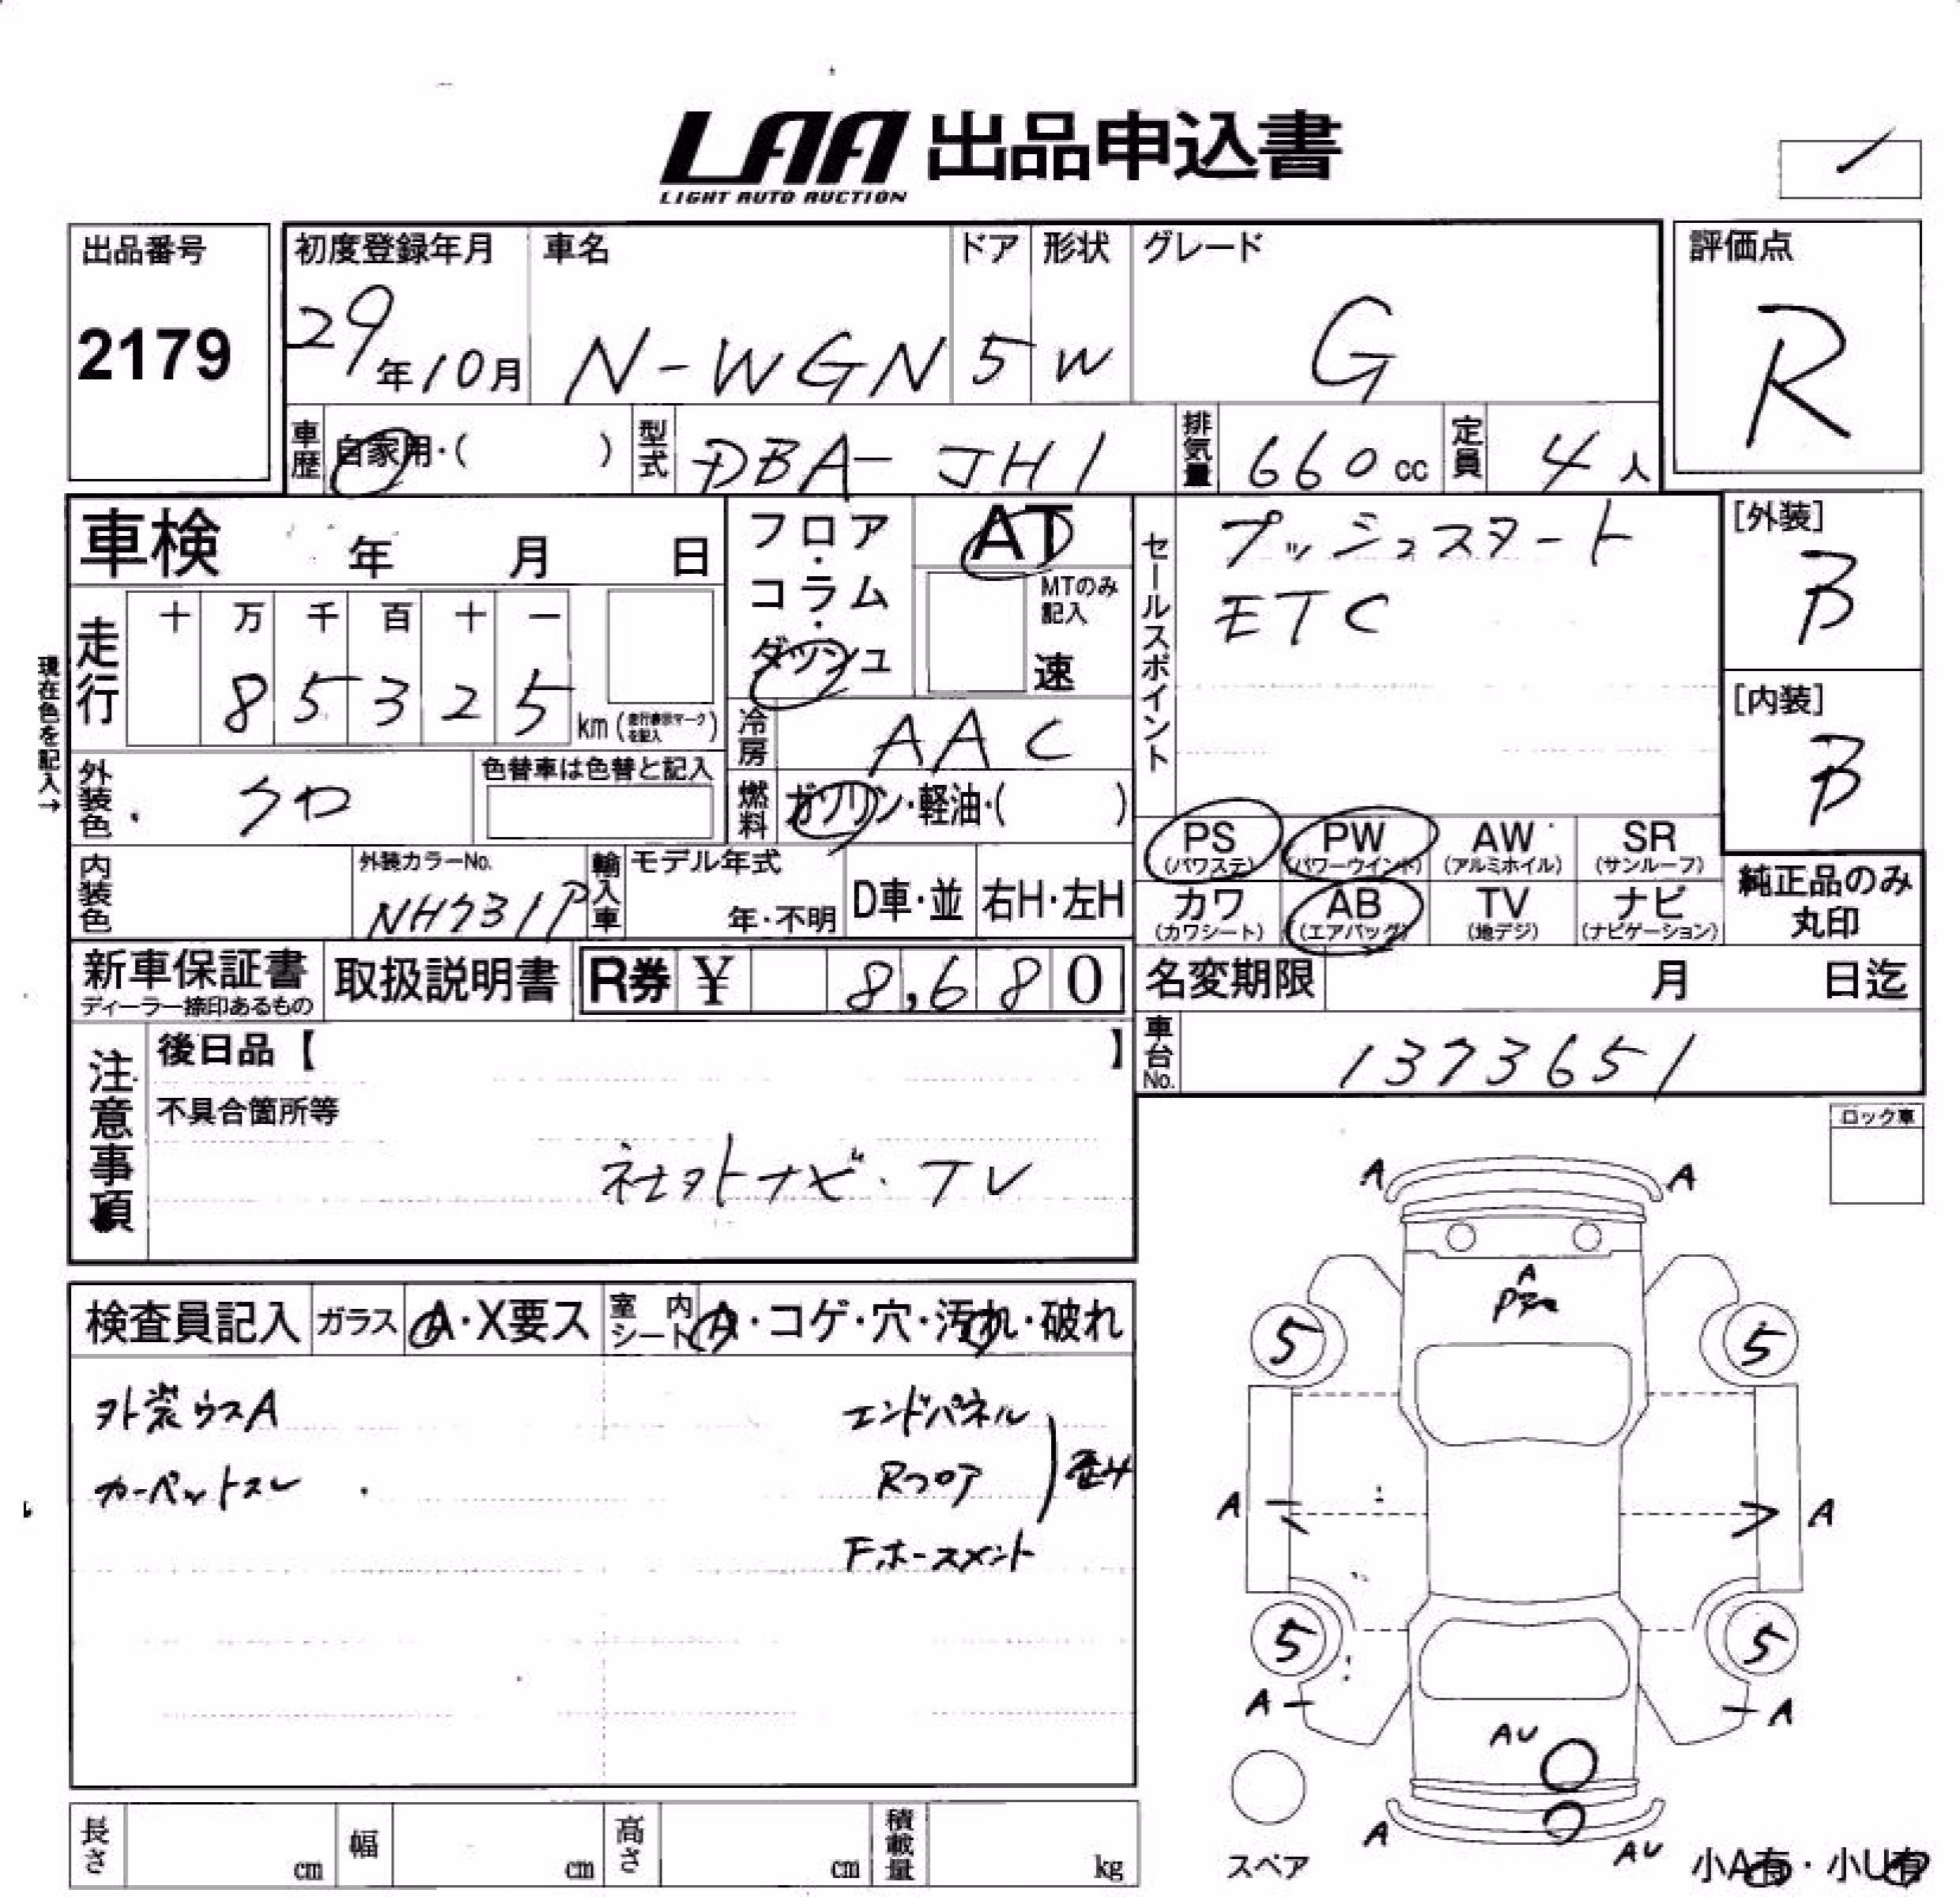 LAA 出品申込書
LIGHT AUTO AUCTION
出品番号
2179
初度登録年月 車名 ドア 形状 グレード
29年10月 N-WGN 5 W G
評価点
R
車歴 自家用・( ) 型式 DBA-JH1 排気量 660cc 定員 4人
車検 年 月 日
フロア・コラム・ダッシュ
AT
MTのみ記入
速
セールスポイント
プッシュスタート
ETC
[外装]
B
[内装]
B
現在色を記入→
走行
十 万 千 百 十 一
8 5 3 2 5 km (走行表示マークを記入)
冷房 AAC
外装色 クロ
色替車は色替と記入
燃料 ガソリン・軽油・( )
PS (パワステ) PW (パワーウインド) AW (アルミホイル) SR (サンルーフ)
カワ (カワシート) AB (エアバッグ) TV (地デジ) ナビ (ナビゲーション)
純正品のみ丸印
内装色
外装カラーNo.
NH731P
輸入車 モデル年式 年・不明 D車・並 右H・左H
新車保証書 ディーラー捺印あるもの
取扱説明書
R券 ¥ 8,680
名変期限 月 日迄
車台No. 1373651
注意事項
後日品【 】
不具合箇所等
社外ナビ・TV
ロック車
検査員記入 ガラス A・X要ス 室内シート A・コゲ・穴・汚れ・破れ
外装ウスA
カーペットスレ
エンドパネル
Rフロア
Fホースメント
A A
A
5 5
A A
5 5
A A
AU
A AU
スペア
小A有・小U有
長さ cm 幅 cm 高さ cm 積載量 kg